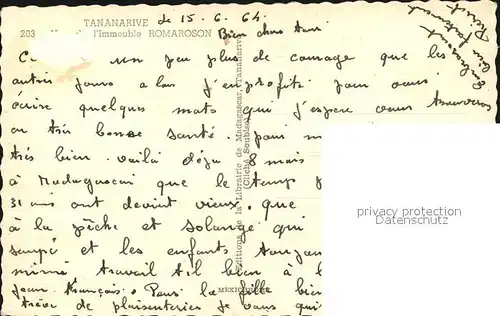 TANANARIVE
203 l'Immeuble ROMAROSON
de 15.6.64.
Bien chers tous
un peu plus de courage que les
autres jours alors j'en profite pour vous
écrire quelques mots qui j'espère vous trouverons
en très bonne santé. pour m
très bien. voilà déjà 8 mois
à Madagascar que le temps
31 ans ont devient vieux. que
à la pêche et Solange qui
soupé et les enfants
travail til bien à l
Jean François. Pour la fille bien
trêve de plaisenteries je vous qui
Éditions de la Librairie de Madagascar, Tananarive
(Cliché Soubles)
MEXICHROME
privacy protection
Datenschutz